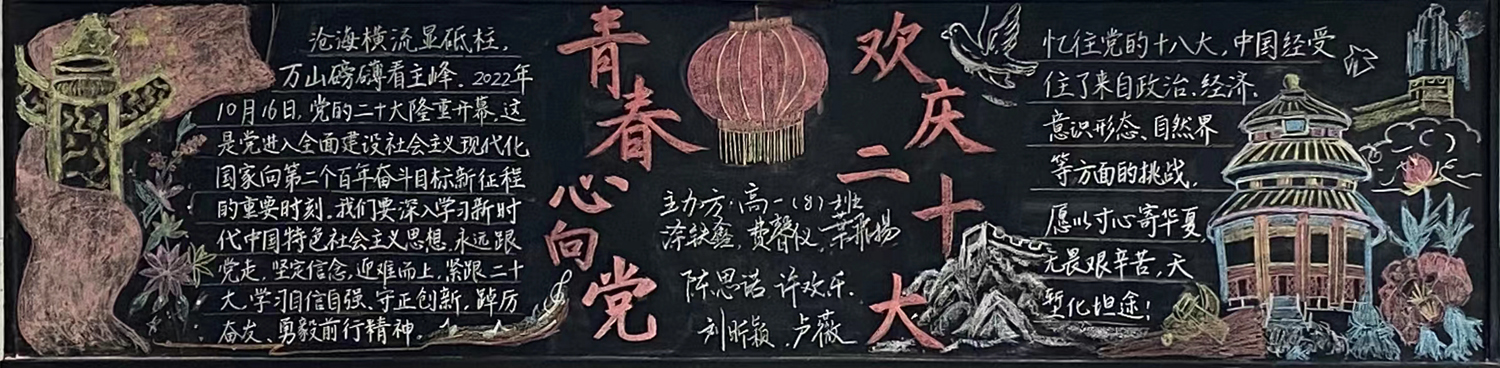 沧海横流显砥柱，
万山磅礴看主峰．2022年
10月16日，党的二十大隆重开幕，这
是党进入全面建设社会主义现代化
国家向第二个百年奋斗目标新征程
的重要时刻．我们要深入学习新时
代中国特色社会主义思想，永远跟
党走，坚定信念，迎难而上，紧跟二十
大，学习自信自强、守正创新，踔厉
奋发、勇毅前行精神．
青春
心向党
欢庆
二十大
主办方：高一（8）班
鑫，费馨仪，扬
陈思诺 许欢乐．
刘昕颖．卢薇
忆往党的十八大，中国经受
住了来自政治、经济、
意识形态、自然界
等方面的挑战，
愿以寸心寄华夏，
无畏艰辛苦，天
堑化坦途！